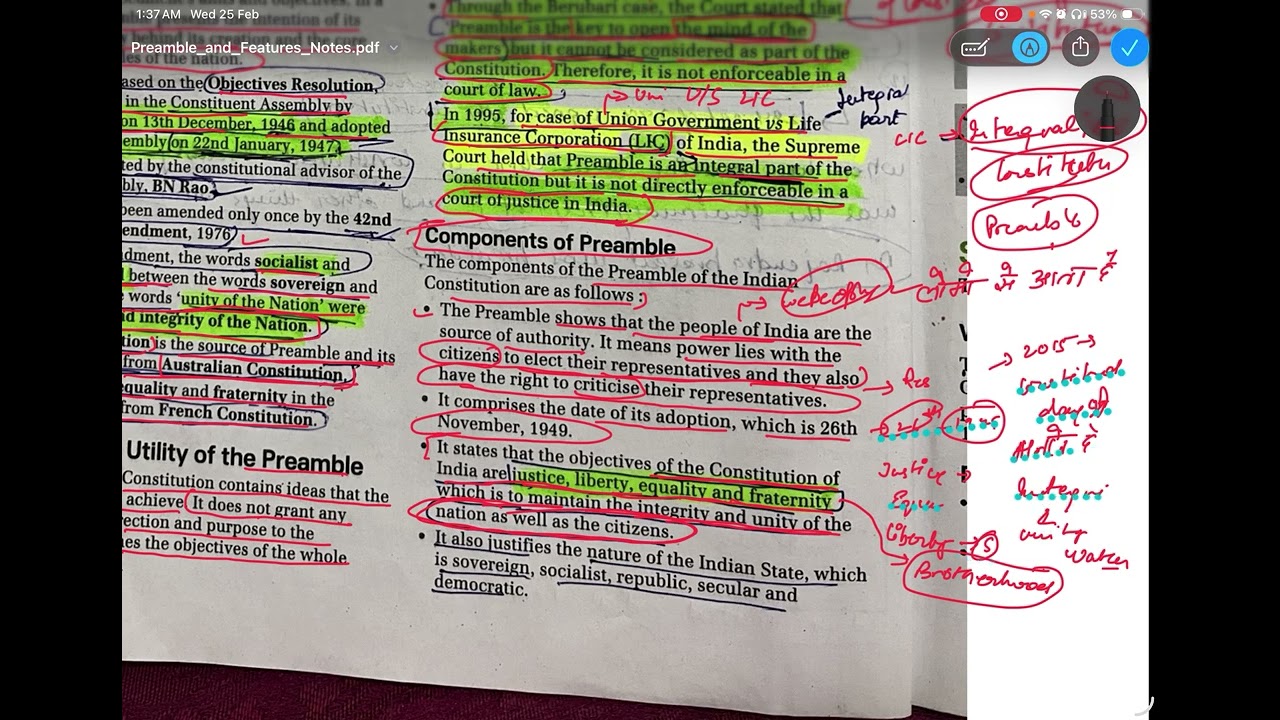 1:37 AM Wed 25 Feb
53%
Preamble_and_Features_Notes.pdf
of the nation.
ased on the Objectives Resolution,
in the Constituent Assembly by
on 13th December, 1946 and adopted
embly on 22nd January, 1947.
ted by the constitutional advisor of the
bly, BN Rao.
been amended only once by the 42nd
endment, 1976
dment, the words socialist and
between the words sovereign and
words 'unity of the Nation' were
nd integrity of the Nation.
tion is the source of Preamble and its
from Australian Constitution.
equality and fraternity in the
from French Constitution.
Utility of the Preamble
Constitution contains ideas that the
achieve It does not grant any
rection and purpose to the
nes the objectives of the whole
Through the Berubari case, the Court stated that
'Preamble is the key to open the mind of the
makers' but it cannot be considered as part of the
Constitution. Therefore, it is not enforceable in a
court of law.
Uni V/S LIC
• In 1995, for case of Union Government vs Life
Insurance Corporation (LIC) of India, the Supreme
Court held that Preamble is an Integral part of the
Constitution but it is not directly enforceable in a
court of justice in India.
Integral
part
Components of Preamble
The components of the Preamble of the Indian
Constitution are as follows :
• The Preamble shows that the people of India are the
source of authority. It means power lies with the
citizens to elect their representatives and they also
have the right to criticise their representatives.
• It comprises the date of its adoption, which is 26th
November, 1949.
• It states that the objectives of the Constitution of
India are justice, liberty, equality and fraternity
which is to maintain the integrity and unity of the
nation as well as the citizens.
• It also justifies the nature of the Indian State, which
is sovereign, socialist, republic, secular and
democratic.
LIC → Integral
Preamble
→ 2015 →
day
Justice
Liberty
Brotherhood
unity